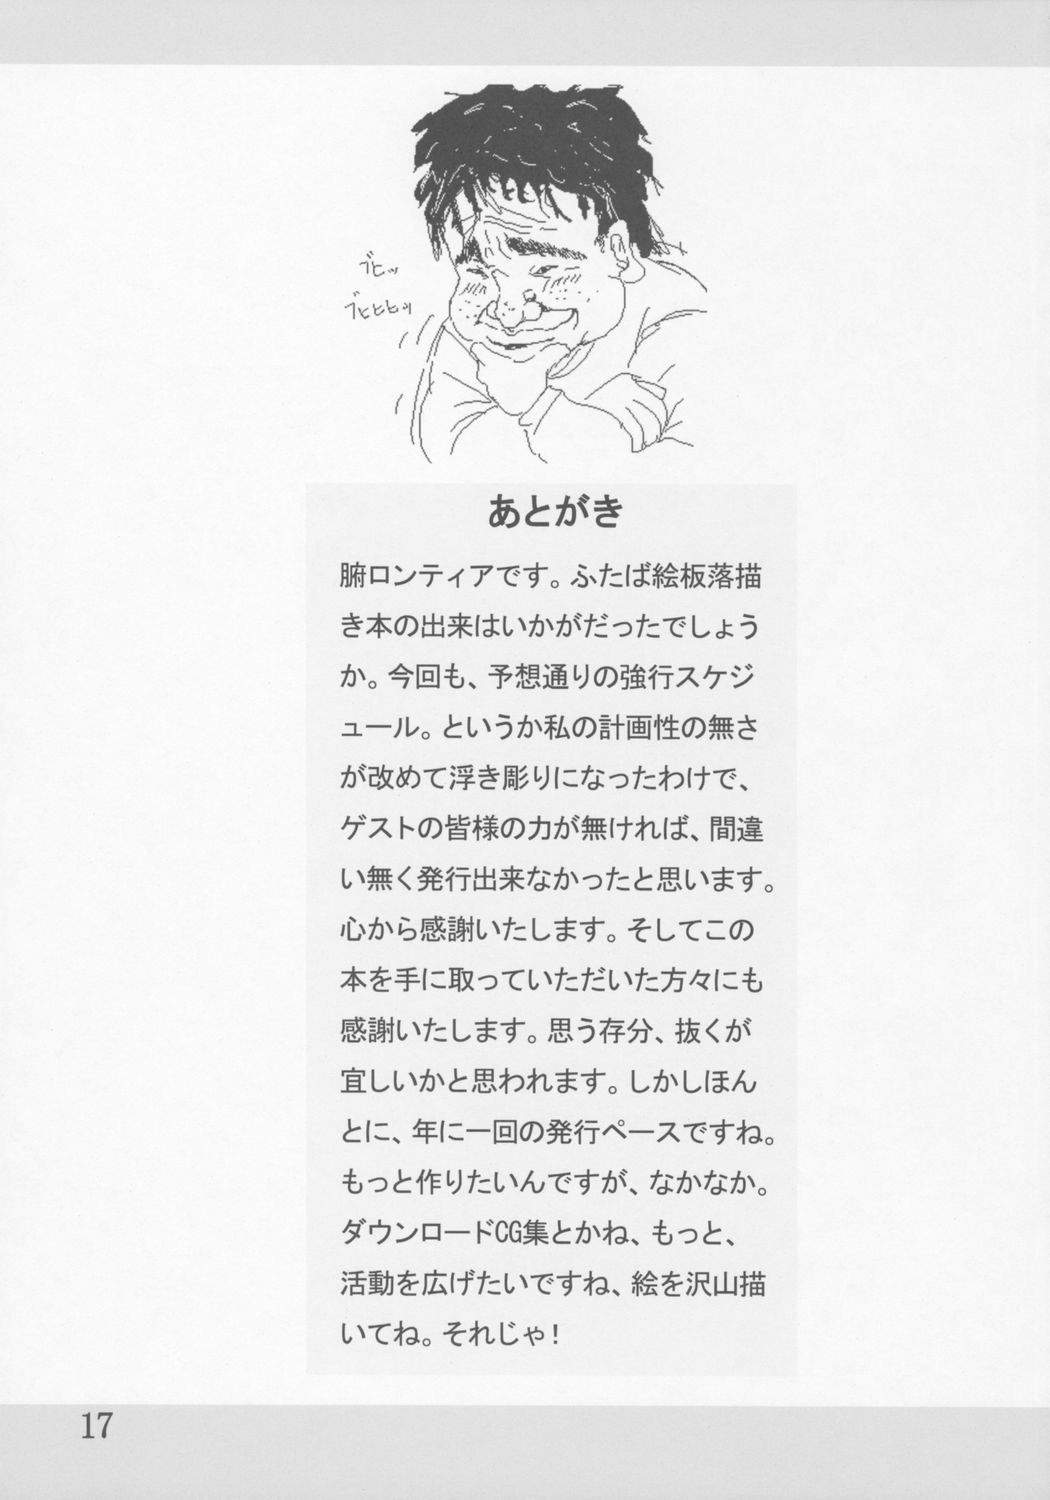 ブヒッ
ブヒヒヒッ
あとがき
腑ロンティアです。ふたば絵板落描
き本の出来はいかがだったでしょう
か。今回も、予想通りの強行スケジ
ュール。というか私の計画性の無さ
が改めて浮き彫りになったわけで、
ゲストの皆様の力が無ければ、間違
い無く発行出来なかったと思います。
心から感謝いたします。そしてこの
本を手に取っていただいた方々にも
感謝いたします。思う存分、抜くが
宜しいかと思われます。しかしほん
とに、年に一回の発行ペースですね。
もっと作りたいんですが、なかなか。
ダウンロードCG集とかね、もっと、
活動を広げたいですね、絵を沢山描
いてね。それじゃ！
17